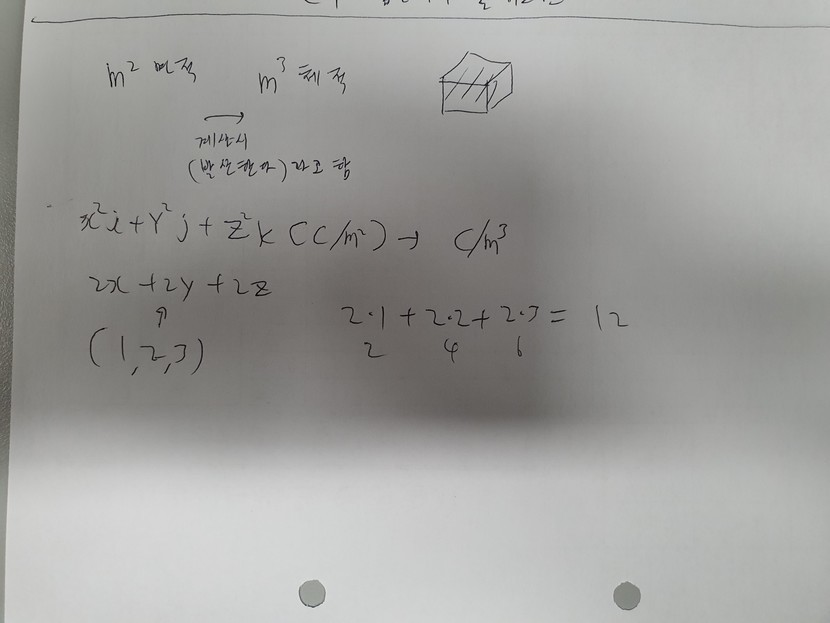 m² 면적 m³ 체적
→
계산시
(발산한다)라고 함
x²i+Y²j+z²k (C/m²) → C/m³
2x+2Y+2z
↑
(1,2,3)
2·1+2·2+2·3= 12
2 4 6